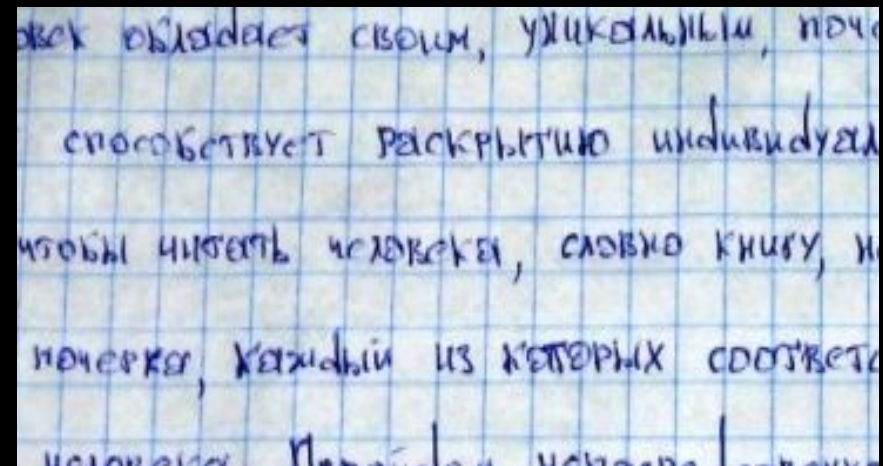 овек обладает своим, уникальным, поче
способствует раскрытию индивидуал
чтобы читать человека, словно книгу, н
почерка, каждый из которых соответс
человека